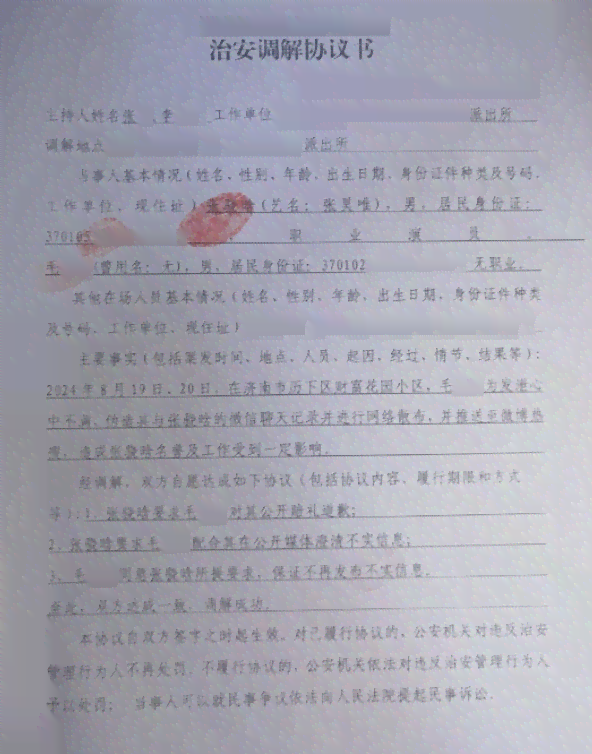 治安调解协议书
主持人姓名张 李 工作单位 派出所
调解地点 派出所
当事人基本情况(姓名、性别、年龄、出生日期、身份证件种类及号码、
工作单位、现住址) (艺名:张昊唯),男,居民身份证:
370105 ,职业演员。
毛 (曾用名:无),男,居民身份证:370102 无职业。
其他在场人员基本情况(姓名、性别、年龄、出生日期、身份证件种类
及号码、工作单位、现住址)
主要事实(包括案发时间、地点、人员、起因、经过、情节、结果等):
2024年8月19日、20日,在济南市历下区财富花园小区,毛 为发泄心
中不满,伪造其与张骏晗的微信聊天记录并进行网络散布,并推送至微博热
搜,造成张骏晗名誉及工作受到一定影响。
经调解,双方自愿达成如下协议(包括协议内容、履行期限和方式
等):1、张骏晗要求毛 对其公开赔礼道歉;
2、张骏晗要求毛 配合其在公开媒体澄清不实信息;
3、毛 同意张骏晗所提要求,保证不再发布不实信息。
至此,双方达成一致,调解成功。
本协议自双方签字之时起生效。对已履行协议的,公安机关对违反治安
管理行为人不再处罚。不履行协议的,公安机关依法对违反治安管理行为人
予以处罚; 当事人可以就民事争议依法向人民法院提起民事诉讼。